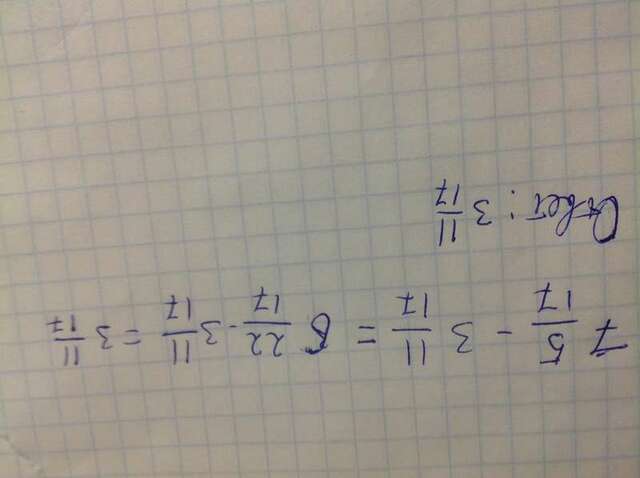 7 5/17 - 3 11/17 = 6 22/17 - 3 11/17 = 3 11/17
Ответ: 3 11/17